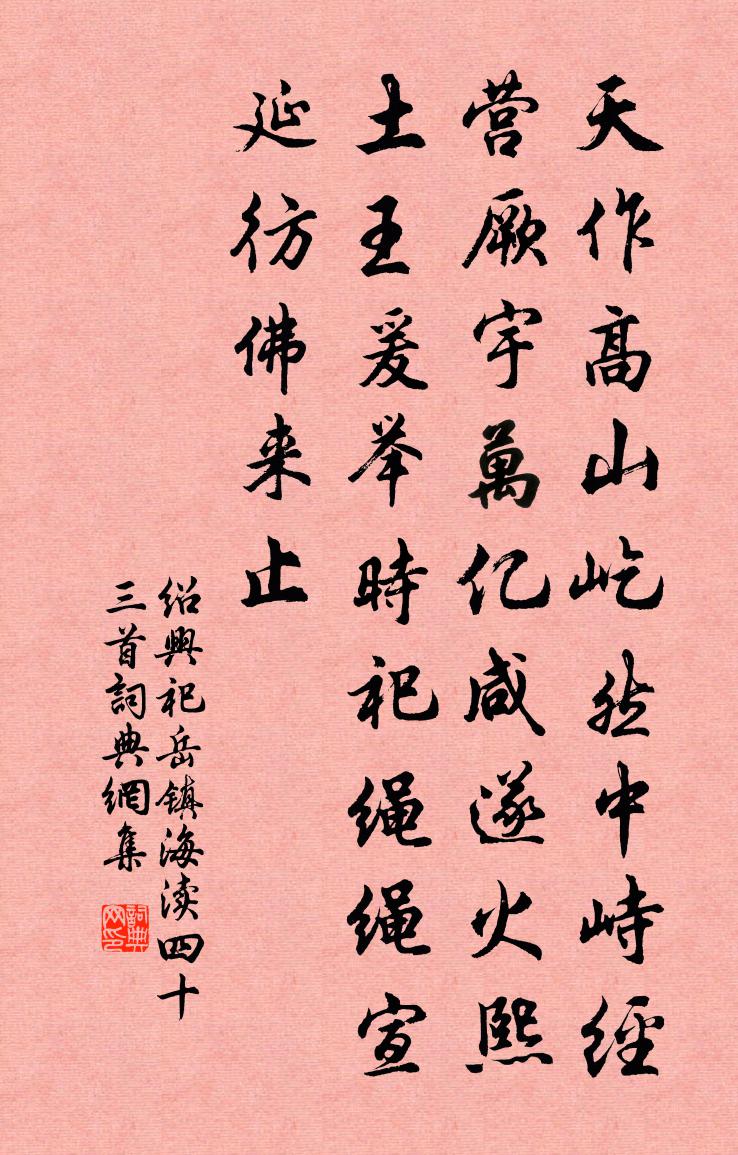 天作高山屹然中峙經
營厥宇萬亿咸遂火熙
土王爰举時祀绳绳宣
延彷佛来止
绍興祀岳镇海渎四十
三首詞典網集
詞典网印